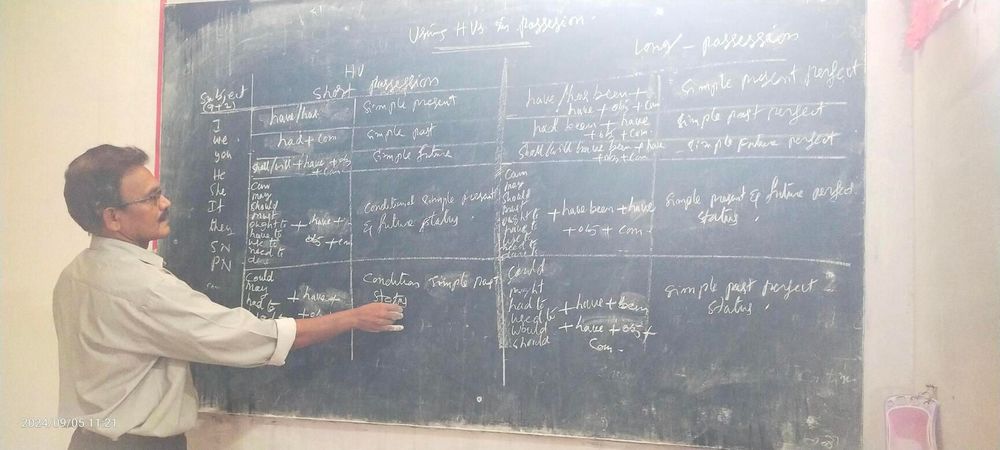 Using HVs in possession.
Long - possession
HV
Short possession
Subject
(9+2)
I
we
you
He
She
It
they
SN
PN
have/has
Simple present
had + com
Simple past
shall/will + have + obj
+ com
Simple future
Can
may
Should
must
ought to
have to
use to
need to
dare
+ have +
obj + com
Conditional Simple present
& future status.
Could
may
had to
+ have +
+ obj
Condition Simple past
Status
have/has been +
have + obj + com
Simple present perfect
had been + have
+ obj + com.
Simple past perfect
shall/will have been + have
+ obj + com
Simple future perfect
Can
may
Should
must
ought to
have to
use to
need to
dare to
+ have been + have
+ obj + com.
Simple present & future perfect
status.
Could
might
had to
used to
would
should
+ have + been
+ have + obj +
Com.
Simple past perfect
status.
2024/09/05 11:21